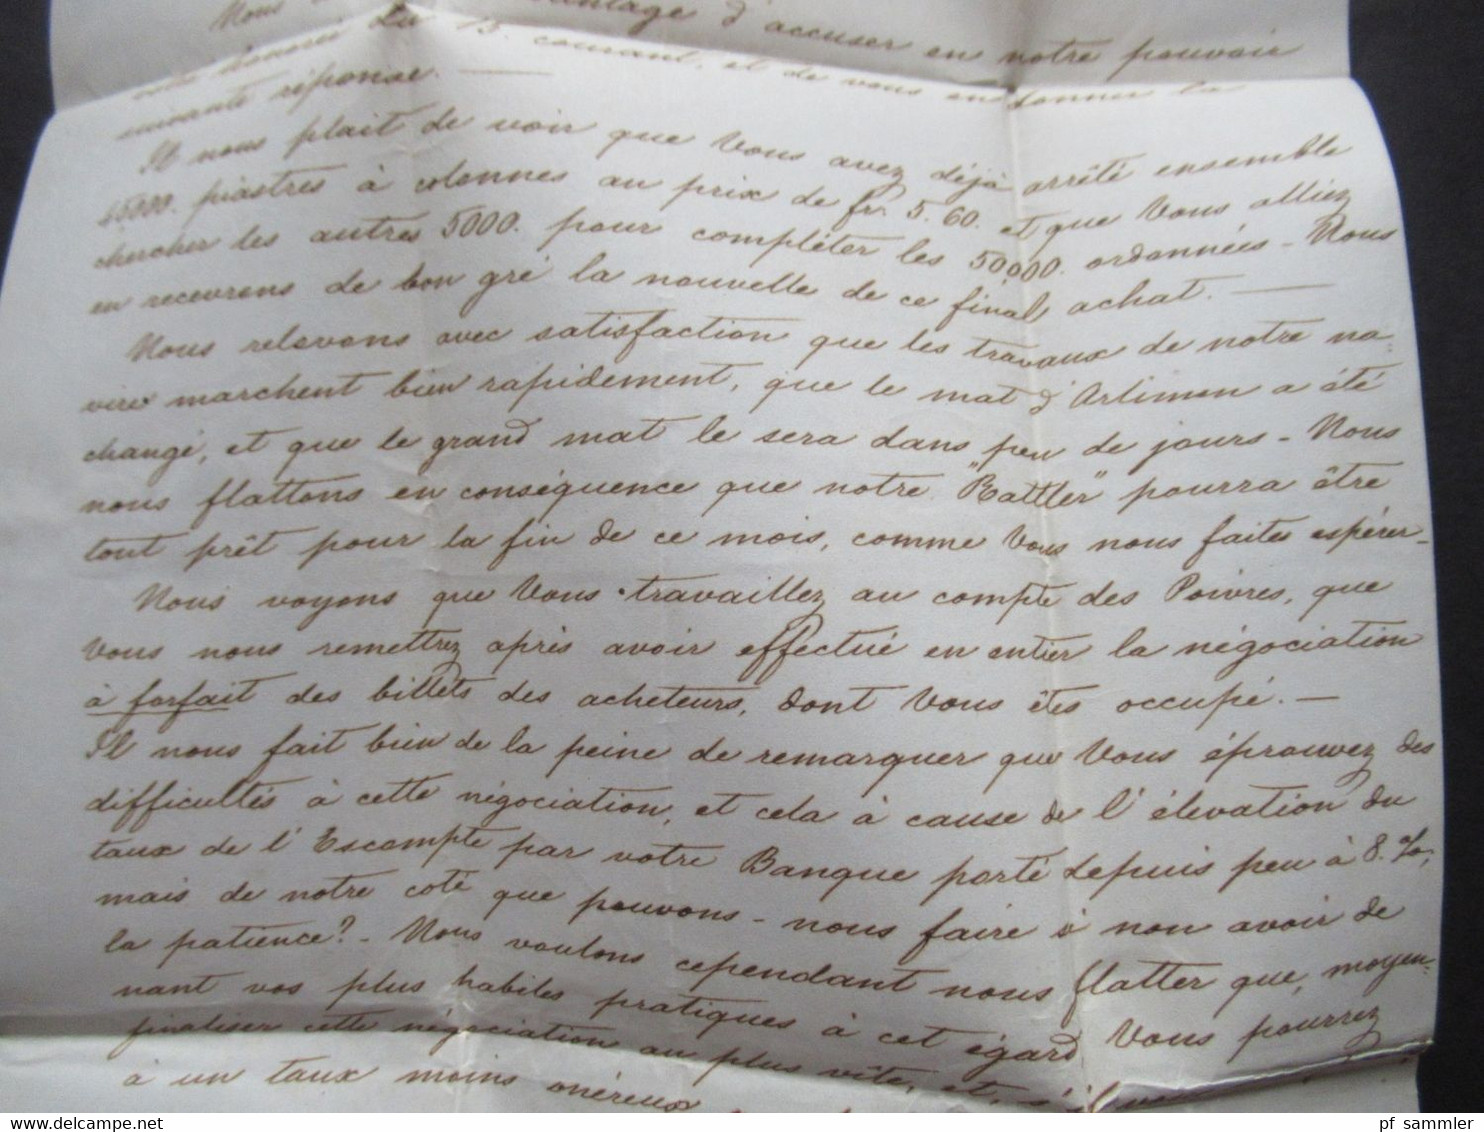 Nous avantage d'accuser en notre pouvoir
votre honorée du 13. courant, et de vous en donner la
suivante réponse. —
Il nous plait de voir que Vous avez déjà arrêté ensemble
45000. piastres à colonnes au prix de fr. 5.60. et que Vous alliez
chercher les autres 5000. pour complèter les 50000. ordonnées – Nous
en recevrons de bon gré la nouvelle de ce final achat. —
Nous relevons avec satisfaction que les travaux de notre na
vire marchent bien rapidement, que le mat d'Artimon a été
changé, et que le grand mat le sera dans peu de jours – Nous
nous flattons en conséquence que notre "Rattler" pourra être
tout prêt pour la fin de ce mois, comme Vous nous faites espérer –
Nous voyons que Vous travaillez au compte des Poivres, que
Vous nous remettrez après avoir effectué en entier la négociation
à forfait des billets des acheteurs, dont Vous êtes occupé. —
Il nous fait bien de la peine de remarquer que Vous éprouvez des
difficultés à cette négociation, et cela à cause de l'élevation du
taux de l'Escompte par votre Banque porté depuis peu à 8.%,
mais de notre coté que pouvons-nous faire à non avoir de
la patience? – Nous voulons cependant nous flatter que, moyen-
nant vos plus habiles pratiques à cet égard Vous pourrez
finaliser cette négociation au plus vite, et, s'il
à un taux moins onéreux
pf_sammler